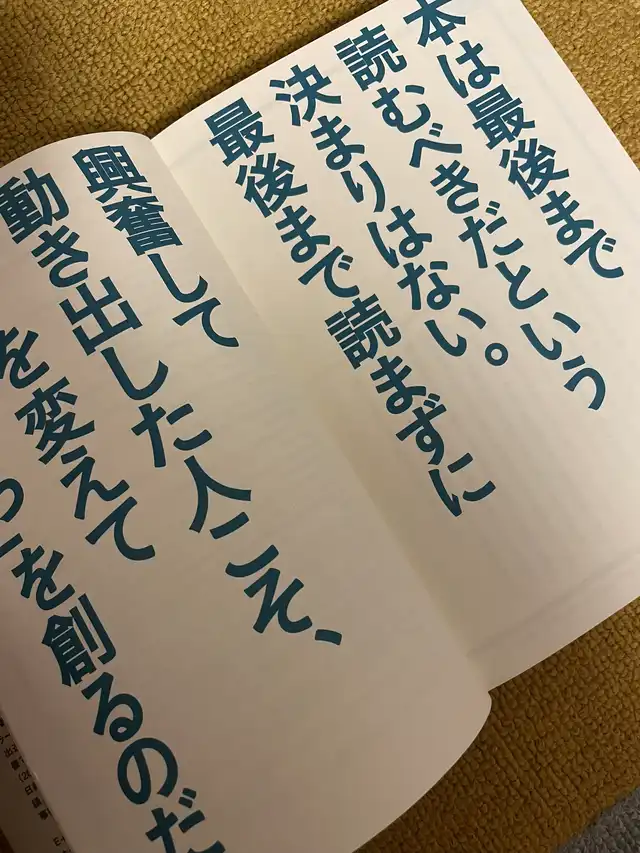 本は最後まで
読むべきだという
決まりはない。
最後まで読まずに
興奮して
動き出した人こそ、
を変えて
を創るのだ